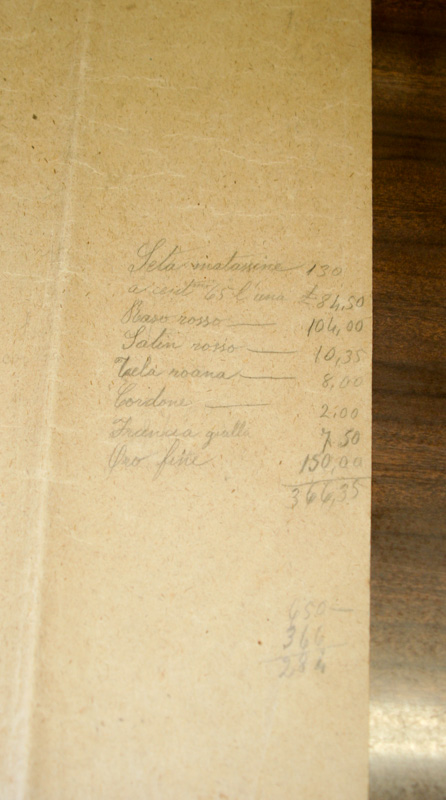 Seta matassine 130
a cent 65 l'una £ 84,50
Raso rosso — 104,00
Satin rosso — 10,35
Tela roana — 8.00
Cordone — 2.00
gialla 7.50
Oro fine 150,00
366,35
650 —
366
284